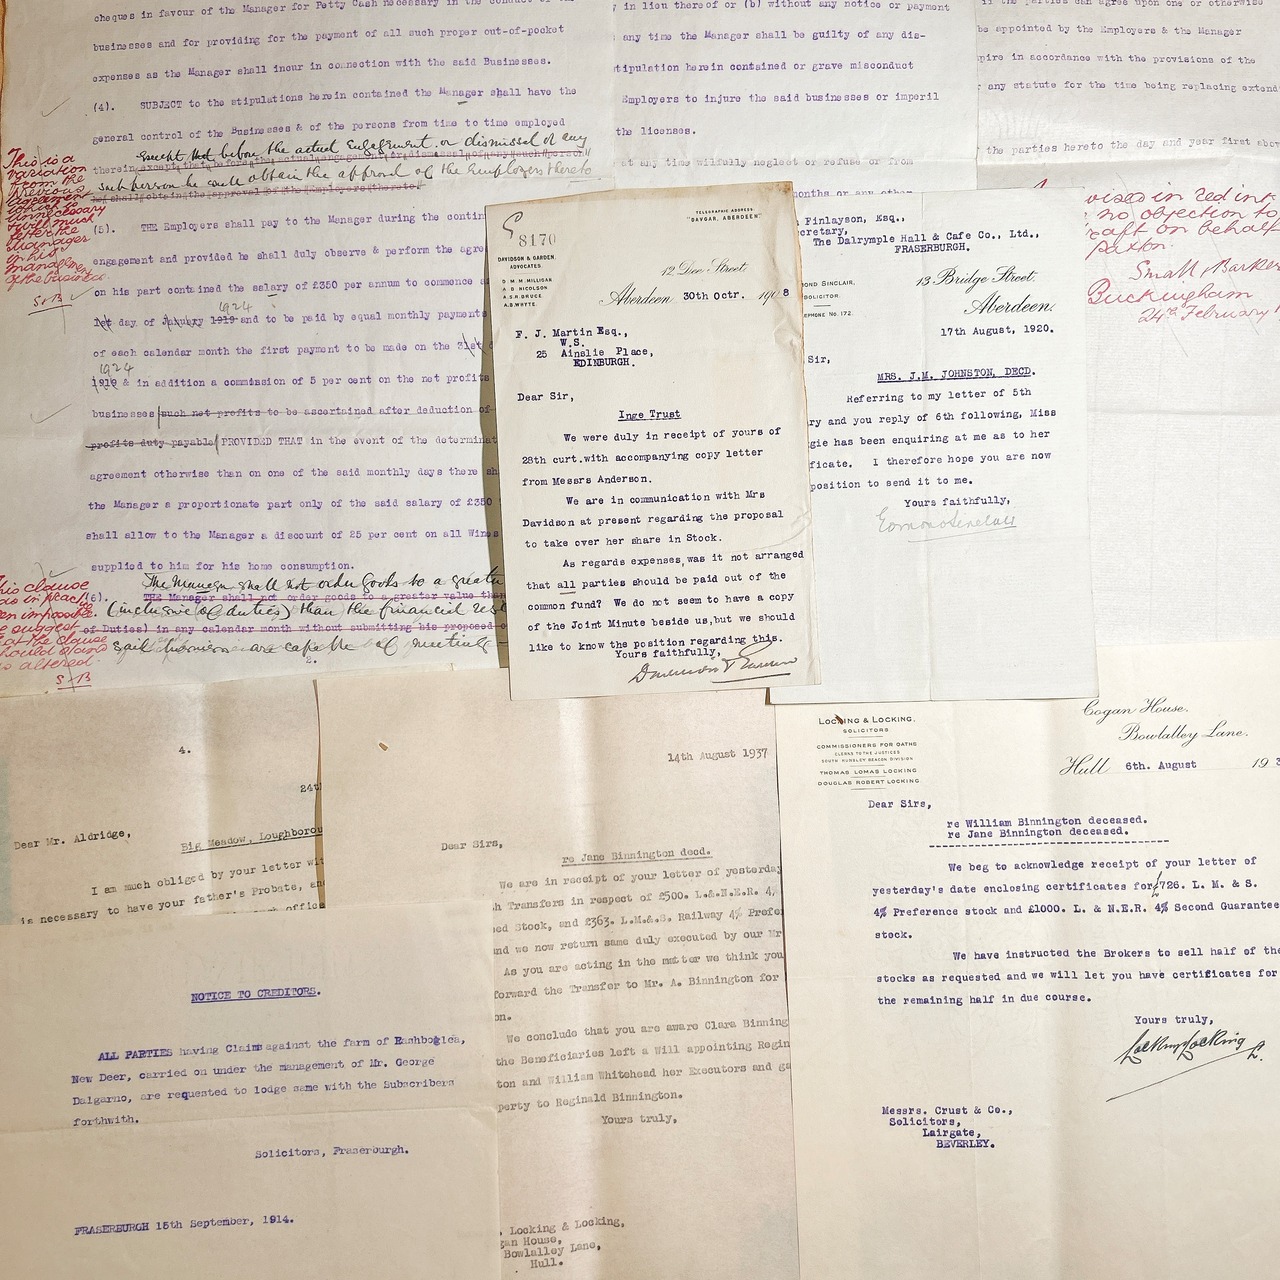 cheques in favour of the Manager for Petty Cash necessary in the conduct of the
businesses and for providing for the payment of all such proper out-of-pocket
expenses as the Manager shall incur in connection with the said Businesses.
(4). SUBJECT to the stipulations herein contained the Manager shall have the
general control of the Businesses & of the persons from time to time employed
except that before the actual engagement or dismissal of any
therein except that before the actual engagement or dismissal of any such person
such person he shall obtain the approval of the Employers thereto
he shall obtain the approval of the Employers thereto
(5). THE Employers shall pay to the Manager during the contin
engagement and provided he shall duly observe & perform the agre
on his part contained the salary of £350 per annum to commence a
1924
1st day of January 1919 and to be paid by equal monthly payments
of each calendar month the first payment to be made on the 31st d
1924
1919 & in addition a commission of 5 per cent on the net profits
businesses such net profits to be ascertained after deduction of
profits duty payable PROVIDED THAT in the event of the determinat
agreement otherwise than on one of the said monthly days there sh
the Manager a proportionate part only of the said salary of £350
shall allow to the Manager a discount of 25 per cent on all Wines
supplied to him for his home consumption.
The Manager shall not order goods to a greate
(6). THE Manager shall not order goods to a greater value than
(inclusive of duties) than the financial res
of Duties) in any calendar month without submitting his proposed o
said businesses are capable of meeting
2.
This is a
variation
from the
previous
agreement
unnecessary
the
Manager
in his
management
of the business.
S & B
This clause
in place
impossible.
suggest
the clause
should stand
as altered.
S & B
y in lieu thereof or (b) without any notice or payment
any time the Manager shall be guilty of any dis-
stipulation herein contained or grave misconduct
Employers to injure the said businesses or imperil
the licenses.
at any time wilfully neglect or refuse or from
months or any other
if the parties can agree upon one or otherwise
be appointed by the Employers & the Manager
pire in accordance with the provisions of the
any statute for the time being replacing extend
the parties hereto the day and year first abov
vised in red ink
no objection to
raft on behalf
Paxton.
Small, Barker
Buckingham
24th February 1
8170
TELEGRAPHIC ADDRESS
"DAVGAR, ABERDEEN"
DAVIDSON & GARDEN,
ADVOCATES.
D. M. M. MILLIGAN
A. D. NICOLSON
A. S. R. BRUCE
A. B. WHYTE.
12 Dee Street,
Aberdeen 30th Octr. 1908
F. J. Martin Esq.,
W.S.
25 Ainslie Place,
EDINBURGH.
Dear Sir,
Inge Trust
We were duly in receipt of yours of
28th curt.with accompanying copy letter
from Messrs Anderson.
We are in communication with Mrs
Davidson at present regarding the proposal
to take over her share in Stock.
As regards expenses,was it not arranged
that all parties should be paid out of the
common fund? We do not seem to have a copy
of the Joint Minute beside us,but we should
like to know the position regarding this.
Yours faithfully,
Davidson & Garden
Finlayson, Esq.,
ecretary,
The Dalrymple Hall & Cafe Co., Ltd.,
FRASERBURGH.
OND SINCLAIR,
SOLICITOR.
EPHONE No. 172.
13 Bridge Street,
Aberdeen.
17th August, 1920.
Sir,
MRS. J.M. JOHNSTON, DECD.
Referring to my letter of 5th
ry and you reply of 6th following, Miss
gie has been enquiring at me as to her
ficate. I therefore hope you are now
position to send it to me.
Yours faithfully,
Edmond Sinclair
4.
24th
Dear Mr. Aldridge,
Big Meadow, Loughborou
I am much obliged by your letter wit
is necessary to have your father's Probate, and
NOTICE TO CREDITORS.
ALL PARTIES having Claims against the farm of Rashboglea,
New Deer, carried on under the management of Mr. George
Dalgarno, are requested to lodge same with the Subscribers
forthwith.
Solicitors, Fraserburgh.
FRASERBURGH 15th September, 1914.
14th August 1937
Dear Sirs,
re Jane Binnington decd.
We are in receipt of your letter of yesterday
h Transfers in respect of £500. L.&.N.E.R. 4,
eed Stock, and £363. L.M.&.S. Railway 4% Prefe
and we now return same duly executed by our Mr
As you are acting in the matter we think you
forward the Transfer to Mr. A. Binnington for
on.
We conclude that you are aware Clara Binning
the Beneficiaries left a Will appointing Regin
ton and William Whitehead her Executors and ga
perty to Reginald Binnington.
Yours truly,
. Locking & Locking,
gan House,
Bowlalley Lane,
Hull.
LOCKING & LOCKING.
SOLICITORS
COMMISSIONERS FOR OATHS
CLERKS TO THE JUSTICES
SOUTH HUNSLEY BEACON DIVISION
THOMAS LOMAS LOCKING
DOUGLAS ROBERT LOCKING
Cogan House.
Bowlalley Lane.
Hull 6th. August 193
Dear Sirs,
re William Binnington deceased.
re Jane Binnington deceased.
We beg to acknowledge receipt of your letter of
yesterday's date enclosing certificates for £726. L. M. & S.
4% Preference stock and £1000. L. & N.E.R. 4% Second Guarantee
stock.
We have instructed the Brokers to sell half of the
stocks as requested and we will let you have certificates for
the remaining half in due course.
Yours truly,
Locking & Locking
Messrs. Crust & Co.,
Solicitors,
Lairgate,
BEVERLEY.